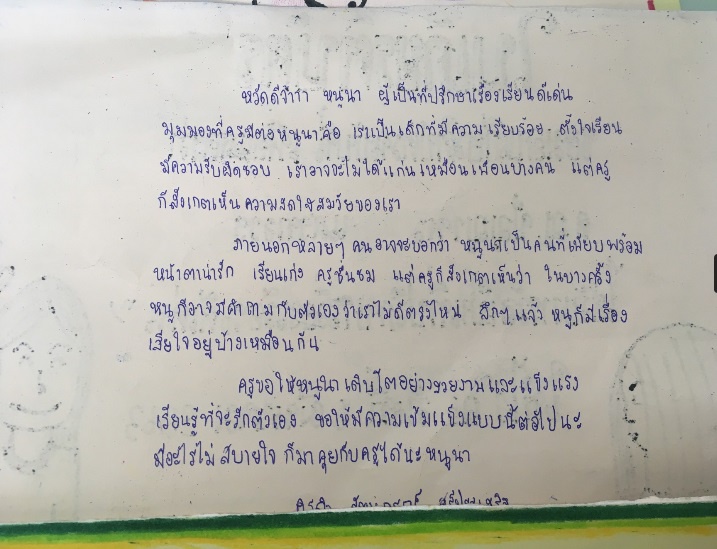 หวัดดีจ้าา หนูนา ผู้เป็นที่ปรึกษาเรื่องเรียนดีเด่น
มุมมองที่ครูมีต่อหนูนา คือ เราเป็นเด็กที่มีความเรียบร้อย ตั้งใจเรียน
มีความรับผิดชอบ เราอาจจะไม่ได้แก่นเหมือนเพื่อนบางคน แต่ครู
ก็สังเกตเห็นความสดใสสมวัยของเรา
ภายนอกหลายๆ คนอาจจะบอกว่า หนูนาเป็นคนที่เพียบพร้อม
หน้าตาน่ารัก เรียนเก่ง ครูชื่นชม แต่ครูก็สังเกตเห็นว่า ในบางครั้ง
หนูก็อาจมีคำถามกับตัวเองว่าเราไม่ดีตรงไหน ลึกๆ แล้ว หนูก็มีเรื่อง
เสียใจอยู่บ้างเหมือนกัน
ครูขอให้หนูนาเติบโตอย่างสวยงามและแข็งแรง
เรียนรู้ที่จะรักตัวเอง ขอให้มีความเข้มแข็งแบบนี้ต่อไปนะ
มีอะไรไม่สบายใจ ก็มาคุยกับครูได้นะ หนูนา